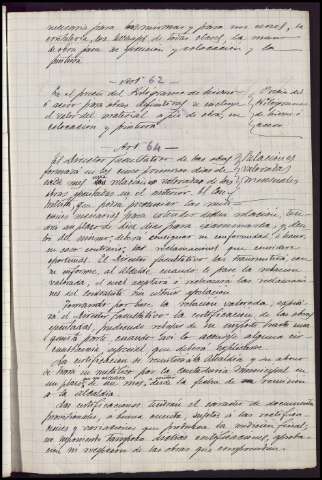 necesaria para las mismas y para sus uniones, la
cristalería, los herrajes de todas clases, la mano
de obra para su ejecución y colocación y la
pintura
Artº 62
En el precio del Kilogramo de hierro
ó acero para obras definitivas se incluye
el valor del material á pie de obra, su
colocacion y pintura
Precio del
Kilogramo
de hierro ó
acero
Artº 64
El Director facultativo de las obras
formará en los cinco primeros días de
cada mes una relacion valorada de las
obras ejecutadas en el anterior. El Con-
tratista, que podrá presenciar las medi-
ciones necesarias para extender dicha relacion, ten-
drá un plazo de diez días para examinarla, y den-
tro del mismo, deberá consignar su conformidad ó hacer,
en caso contrario, las reclamaciones que considere
oportunas. El Director facultativo las transmitirá, con
su informe, al Alcalde, cuando le pase la relacion
valorada, el cual aceptará ó rechazará las reclamacio-
nes del contratista sin ulterior apelación
Relaciones
valoradas
mensuales
Tomando por base la relacion valorada, expedi-
rá el Director facultativo la certificacion de las obras
ejecutadas, pudiendo rebajar de su importe hasta una
quinta parte cuando así lo aconseje alguna cir-
cunstancia especial que deberá explicarse
La certificacion se remitirá á la Alcaldía y su abono
se hará en metálico por la Contaduría Municipal en
un plazo de un mes, desde la fecha de su remision
á la Alcaldía.
Las certificaciones tendrán el carácter de documentos
provisionales, á buena cuenta, sujetos á las rectifica-
ciones y variaciones que produzca la medicion final,
no suponiendo tampoco dichas certificaciones, aproba-
cion ni recepcion de las obras que comprendan.